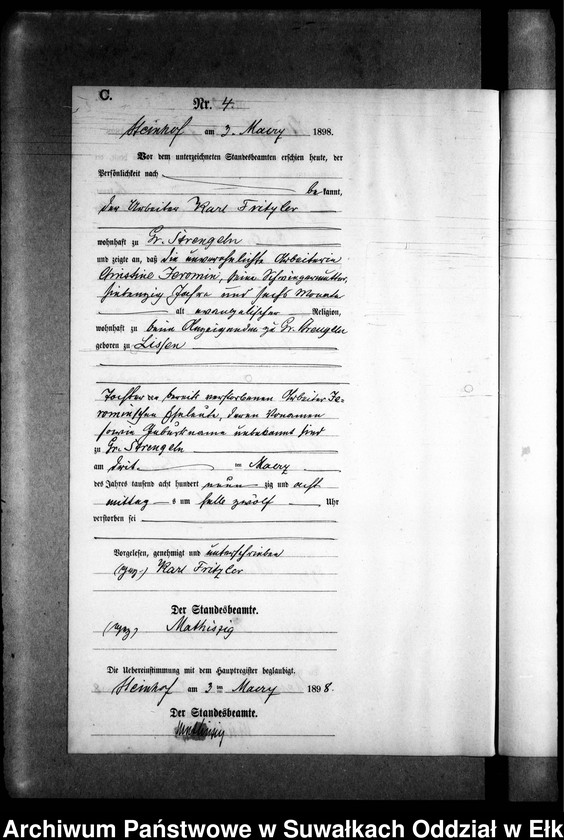 C.
Nr. 4.
Steinhof am 3. Maerz 1898.
Vor dem unterzeichneten Standesbeamten erschien heute, der
Persönlichkeit nach
be kannt,
der Arbeiter Karl Fritzler
wohnhaft zu Gr. Strengeln
und zeigte an, daß die unverehelichte Arbeiterin
Christine Jeromin, seine Schwiegermutter,
siebenzig Jahre und sechs Monate
alt evangelischer Religion,
wohnhaft zu beim Anzeigenden zu Gr. Strengeln
geboren zu Lissen
Tochter der bereits verstorbenen Arbeiter Je-
rominschen Eheleute, deren Vornamen
sowie Geburtsname unbekannt sind
zu Gr. Strengeln
am drit. im Maerz
des Jahres tausend acht hundert neun zig und acht
mittag s um halb zwölf Uhr
verstorben sei
Vorgelesen, genehmigt und unterschrieben
(gez.) Karl Fritzler
Der Standesbeamte.
(gez) Mathiszig
Die Uebereinstimmung mit dem Hauptregister beglaubigt.
Steinhof am 3 ten Maerz 1898.
Der Standesbeamte.
Mathiszig
Archiwum Państwowe w Suwałkach Oddział w Ełk